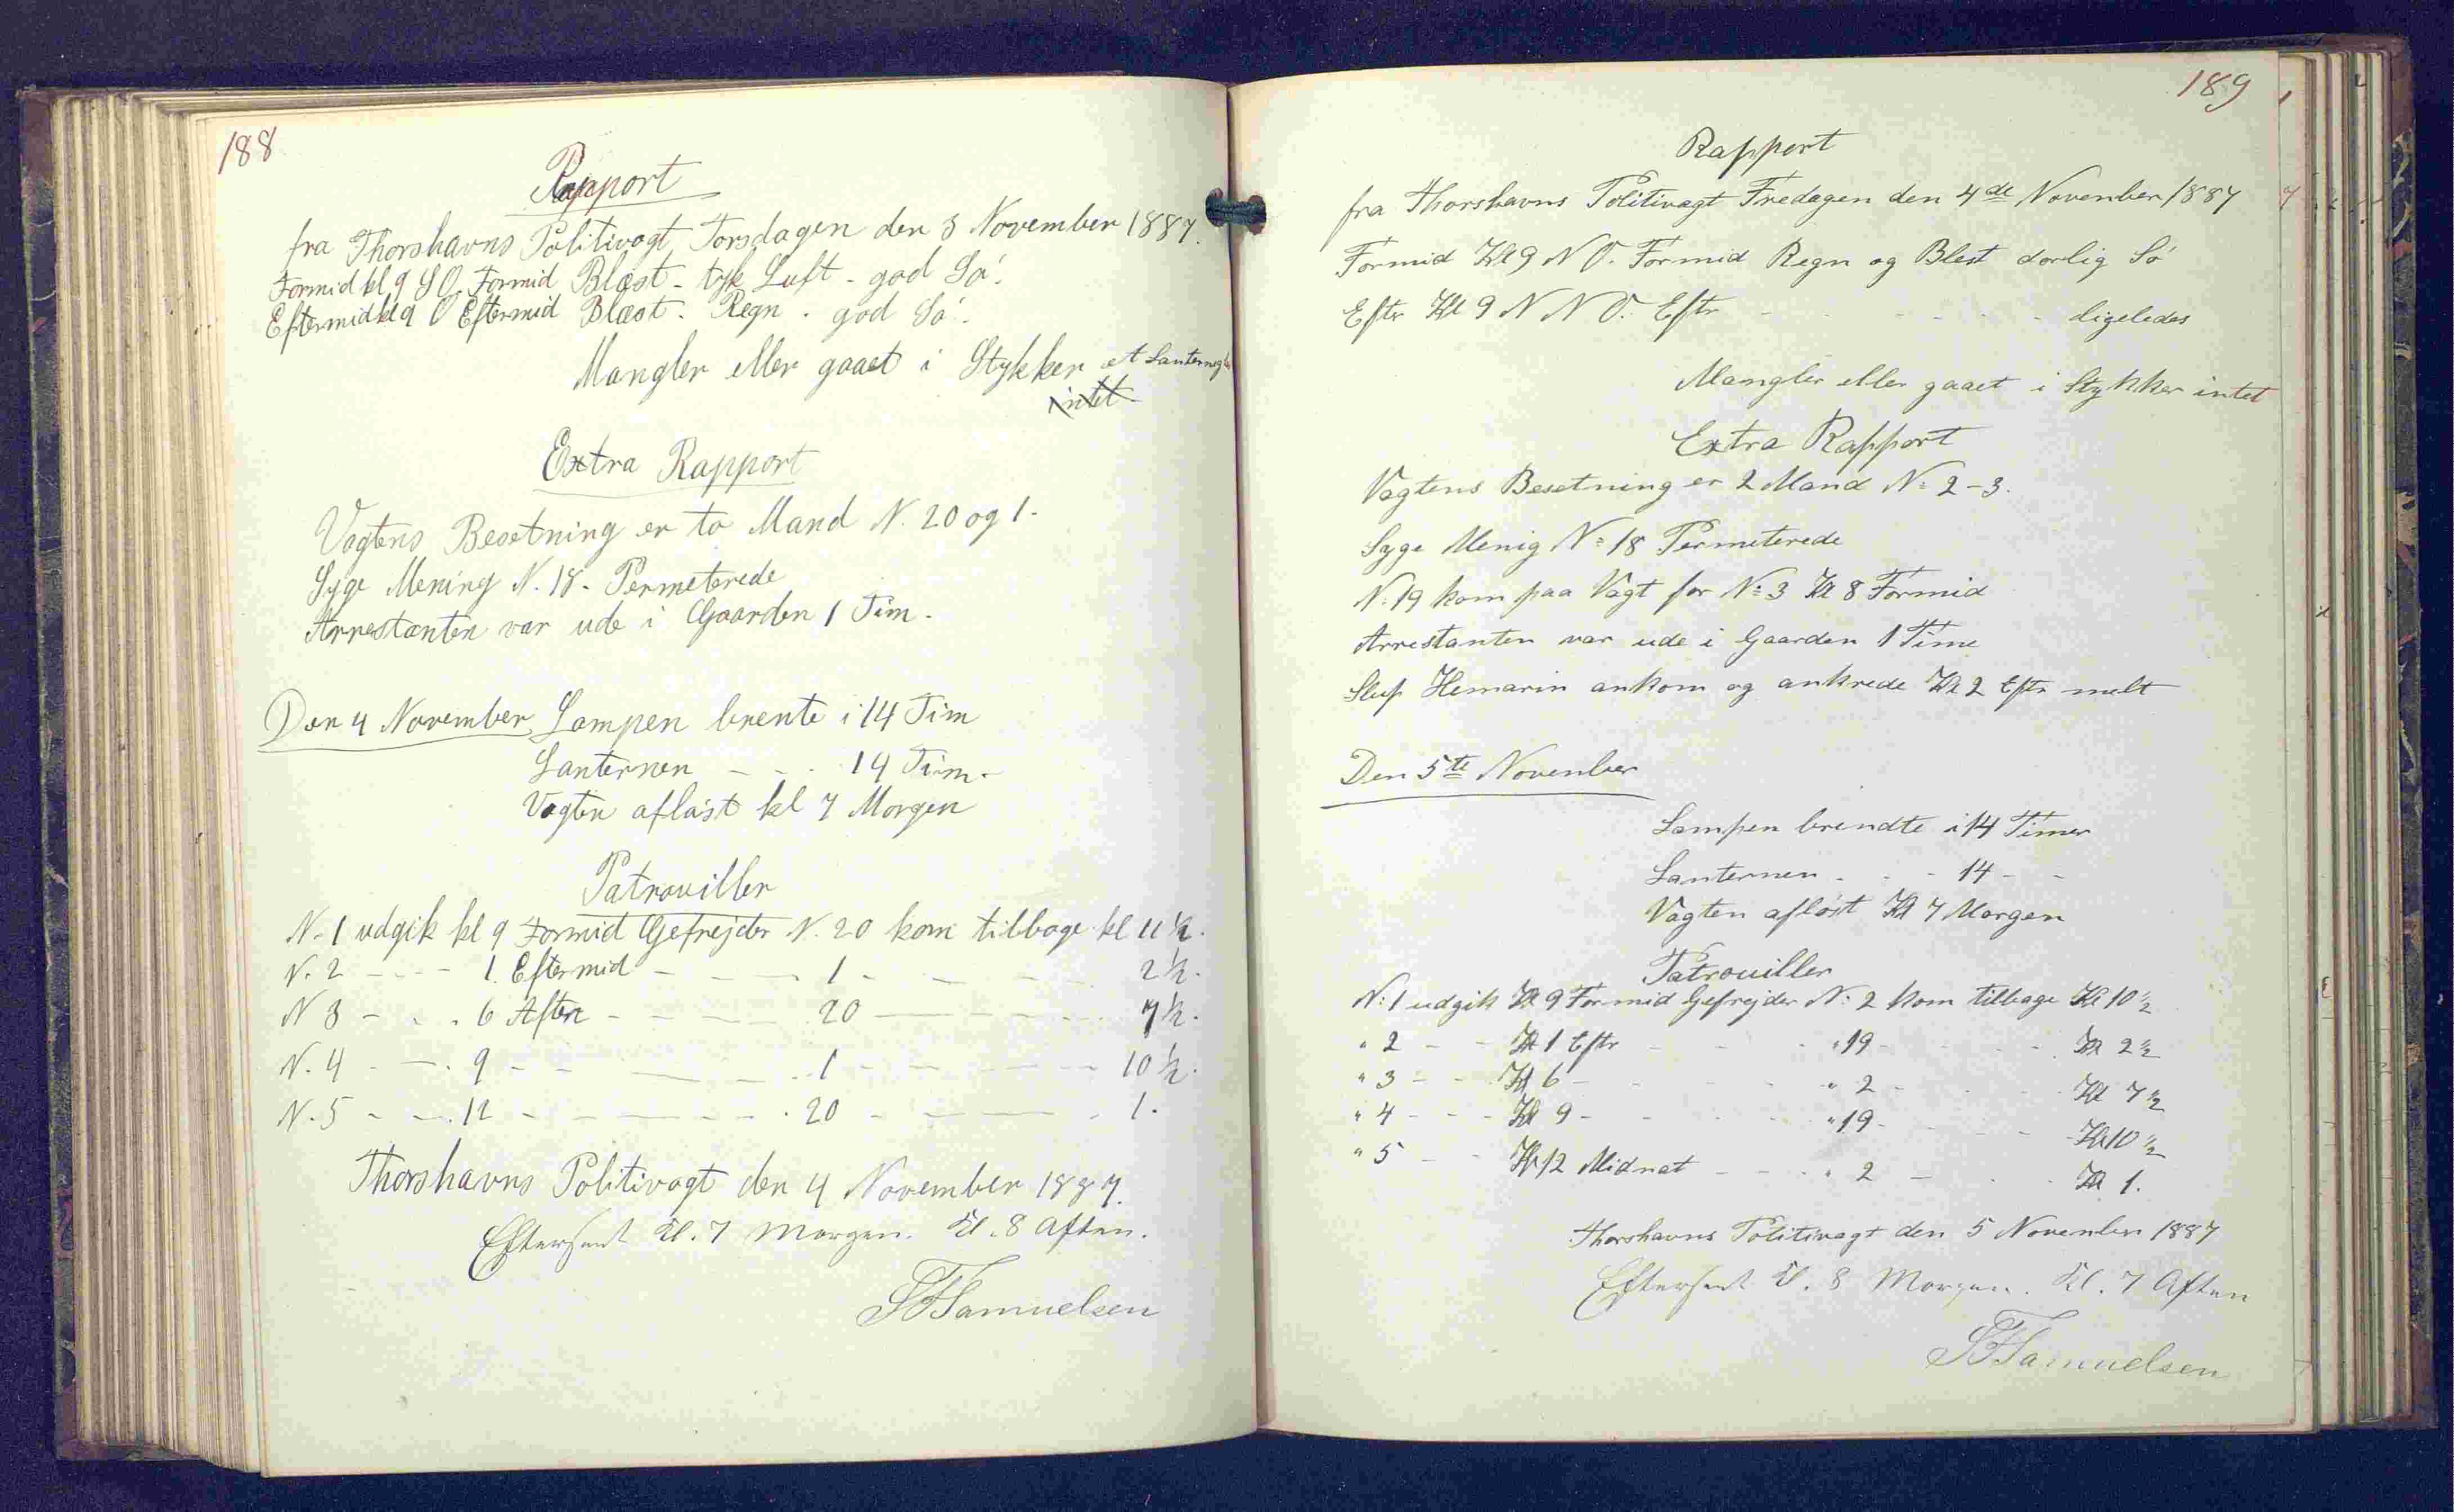 188
Rapport
fra Thorshavns Politivagt Torsdagen den 3 November 1887.
Formid kl 9 SO. Formid Blæst - tyk Luft - god Sö.
Eftermid kl 9 O Eftermid Blæst - Regn . god Sö.
Mangler eller gaaet i Stykker et Lanterneg
intet
Extra Rapport
Vagtens Besetning er to Mand N. 20 og 1.
Syge Mening N. 18 - Permeterede
Arrestanten var ude i Gaarden 1 Tim.
Den 4 November Lampen brente i 14 Tim
Lanternen - - - 14 Tim.
Vagten aflöst kl 7 Morgen
Patrouiller
N. 1 udgik kl 9 Formid Gefrejder N. 20 kom tilbage kl 11 ½.
N. 2 - - - 1. Eftermid - - 1 - - - 2 ½.
N 3 - - - 6 Aften - - - 20 - - - 7 ½.
N. 4 - - . 9 - - - - 1 - - - 10 ½.
N. 5 - - . 12 - - - - 20 - - - 1.
Thorshavns Politivagt den 4 November 1887.
Efterseet Kl. 7 Morgen. Kl. 8 Aften.
SFSamuelsen
189
Rapport
fra Thorshavns Politivagt Fredagen den 4de November 1887
Formid Kl 9 N O. Formid Regn og Blest dorlig Sö
Eftr Kl 9 N N O. Eftr - - - - - ligeledes
Mangler eller gaaet i Stykker intet
Extra Rapport
Vagtens Besetning er 2 Mand No 2-3.
Syge Menig No 18 Permeterede
No 19 kom paa Vagt for No 3 Kl 8 Formid
Arrestanten var ude i Gaarden 1 Time
Slup Hemarin ankom og ankrede Kl 2 Eftr melt
Den 5te November
Lampen brendte i 14 Timer
Lanternen - - - 14 - -
Vagten aflöst Kl 7 Morgen
Patrouiller
No 1 udgik Kl 9 Formid Gefrejder No 2 kom tilbage Kl 10 ½
" 2 - - Kl 1 Eftr - - " 19 - - - Kl 2 ½
" 3 - - Kl 6 - - - " 2 - - - Kl 7 ½
" 4 - - - Kl 9 - - - " 19 - - - Kl 10 ½
" 5 - - Kl 12 Midnat - - - " 2 - - Kl 1.
Thorshavns Politivagt den 5 November 1887
Efterseet Kl. 8 Morgen. Kl. 7 Aften
SFSamuelsen